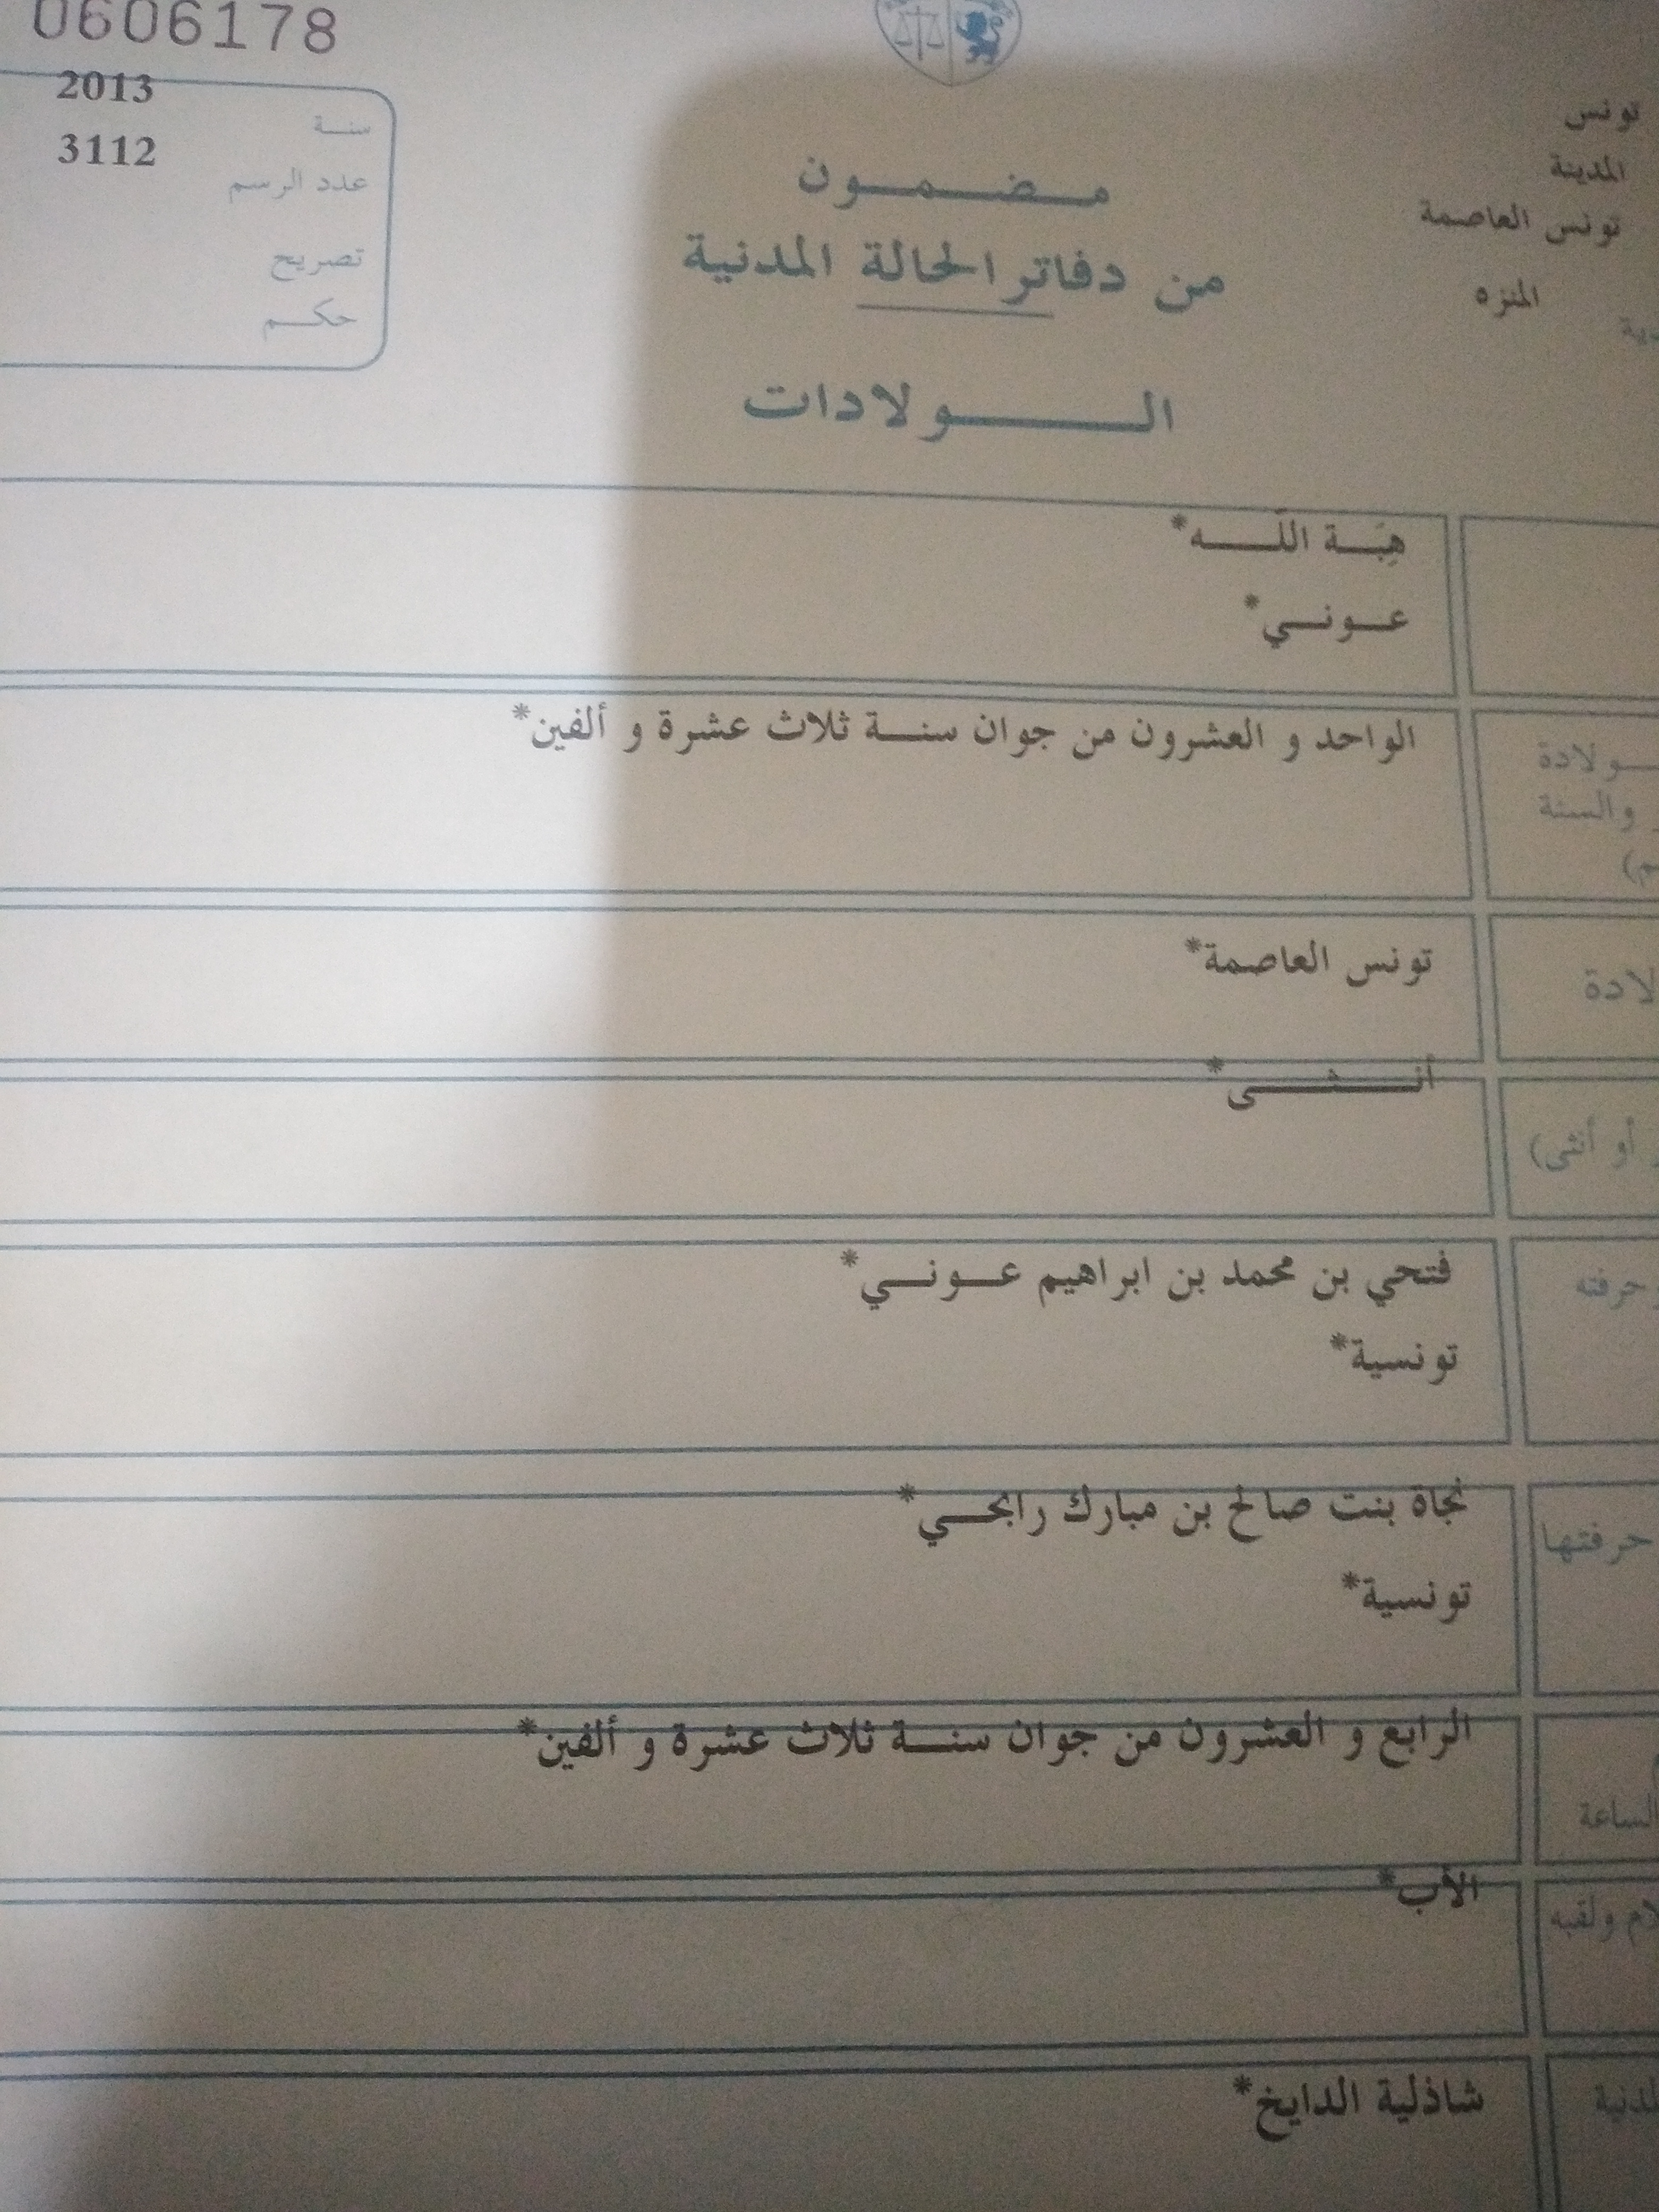 0606178
2013
سنة
3112
عدد الرسم
تصريح
حكم
تونس
المدينة
تونس العاصمة
المنزه
مضمون
من دفاتر الحالة المدنية
الولادات
هِبَة اللّه*
عوني*
الواحد و العشرون من جوان سنة ثلاث عشرة و ألفين*
ولادة
والسنة
تونس العاصمة*
لادة
أنثى*
أو أنثى)
فتحي بن محمد بن ابراهيم عوني*
حرفته
تونسية*
نجاة بنت صالح بن مبارك رابحي*
حرفتها
تونسية*
الرابع و العشرون من جوان سنة ثلاث عشرة و ألفين*
الساعة
الأب*
لام ولقبه
شاذلية الدايخ*
لدنية